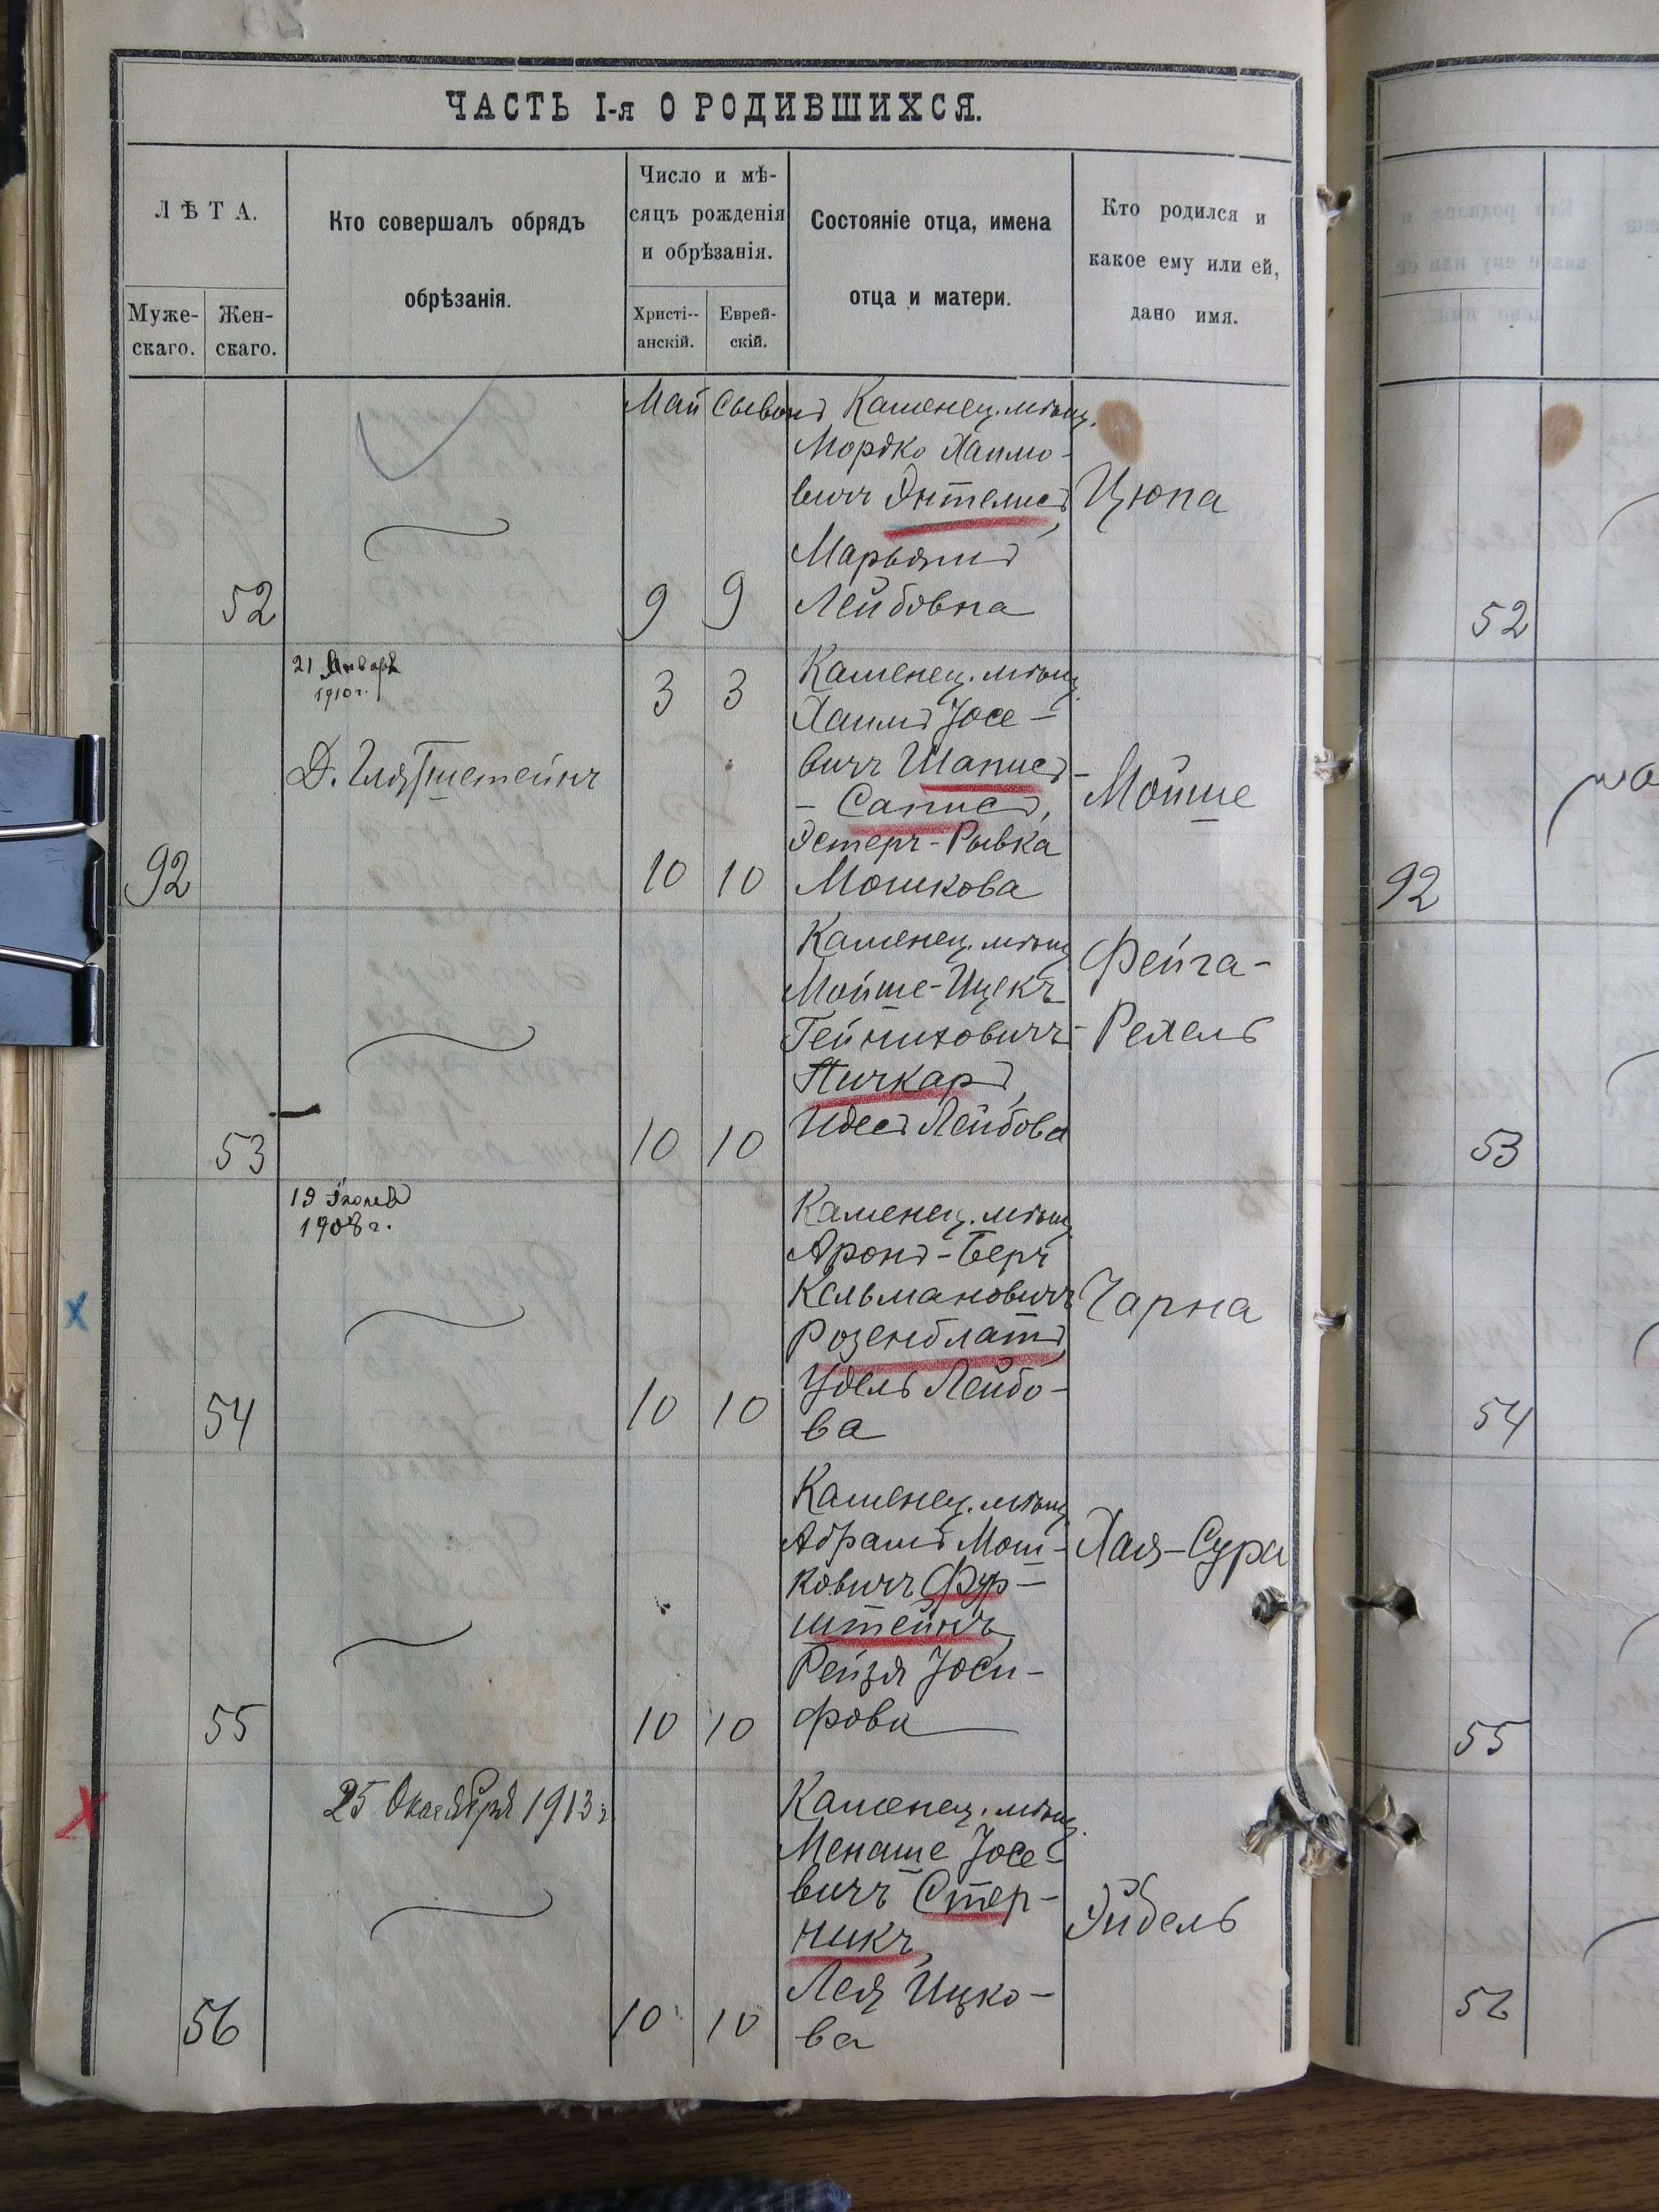 ЧАСТЬ I-я О РОДИВШИХСЯ.
ЛѢТА.
Муже-
скаго.
Жен-
скаго.
Кто совершалъ обрядъ
обрѣзанія.
Число и мѣ-
сяцъ рожденія
и обрѣзанія.
Христі-
анскій.
Еврей-
скій.
Состояніе отца, имена
отца и матери.
Кто родился и
какое ему или ей,
дано имя.
Май Сыванъ
52
9 9
Каменец. мѣщ.
Мордко Хаимо-
вичъ Энтелисъ,
Марьямъ
Лейбовна
Цюпа
52
92
21 Января
1910 г.
3 3
10 10
Каменец. мѣщ.
Хаимъ Іосе-
вичъ Шаписъ-
- Саписъ,
Эстеръ-Рывка
Мошкова
Мойше
92
53
10 10
Каменец. мѣщ.
Мойше-Ицекъ
Гейниховичъ-
Пичкаръ,
Идесъ Лейбова
Фейга-
Рехель
53
54
1908 г.
10 10
Каменец. мѣщ.
Аронъ-Беръ
Кельмановичъ
Розенблатъ,
Удель Лейбо-
ва
Чарна
54
55
10 10
Каменец. мѣщ.
Абрамъ Мош-
ковичъ Фур-
штейнъ,
Рейзя Іоси-
фова
Хая-Сура
55
56
25 Октября 1913 г.
10 10
Каменец. мѣщ.
Менаше Іосе-
вичъ Стер-
никъ,
Лея Ицко-
ва
Эйдель
56